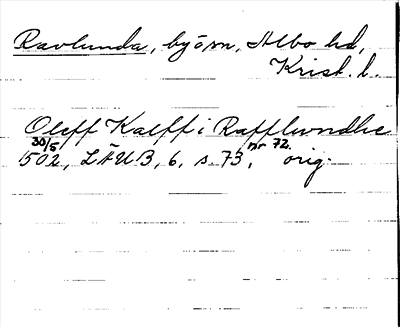 Ravlunda, byörn, Albo hd,
Krist. l.
Oleff Kalff i Rafflwndhe
30/5
1502, LÄUB, 6, s. 73, nr 72. orig.